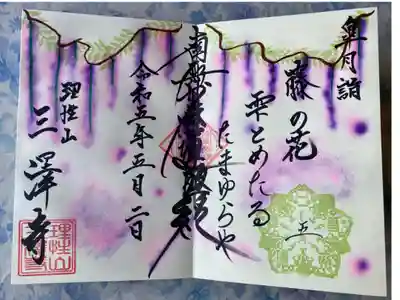 皐月詣
藤の花
雫とめたる
たまゆらや
南無妙法蓮華経
令和五年五月二日
理性山
三澤寺